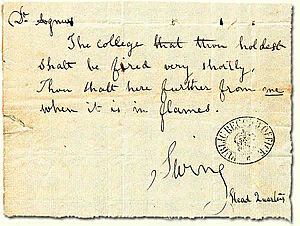 Dr Sogmus
The college that thou holdest
shall be fired very shortly.
Thou shalt here further from me
when it is in flames.
PUBLIC RECORD OFFICE
Swing
Head Quarters